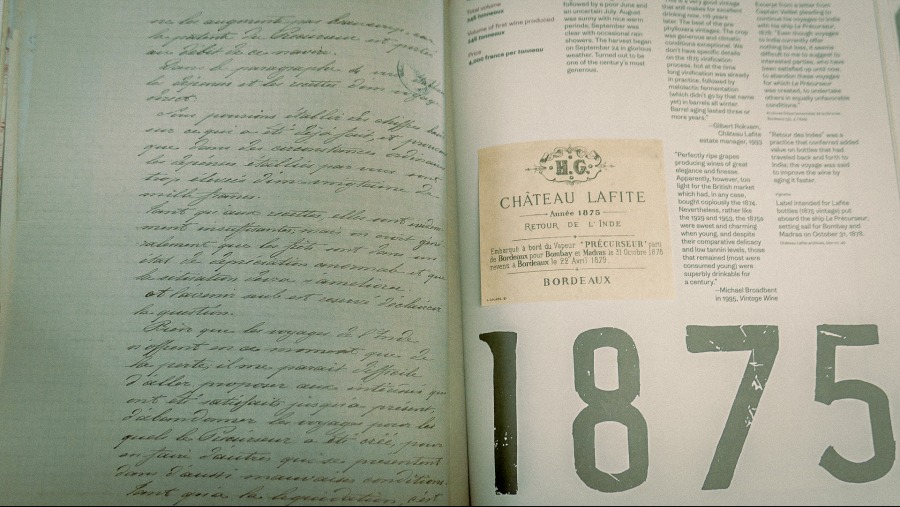 ne les augmente pas beaucoup, car
la patente de Précurseur est
au début de ce navire.
Dans le paragraphe
les dépenses et les recettes d'un voyage
Nous pouvions établir des chiffres
sur ce qui a été déjà fait, et
que dans des circonstances
les dépenses établies par
trop élevées d'une vingtaine de
mille francs.
Tant qu'aux recettes, elles sont
ment insuffisantes, mais on croit géné
ralement que les frêts sont dans un
état de dépréciation anormale et que
la situation devra s'améliorer.
et l'avenir seul est réservé d'éclaircir
la question.
Bien que les voyages de l'Inde
n'offrent en ce moment que de
la perte, il me parait difficile
d'aller proposer aux intéressés qui
ont été satisfaits jusqu'à présent,
d'abandonner les voyages pour les
quels le Précurseur a été créé, pour
en faire d'autres qui se présentent
dans d'aussi mauvaises conditions.
Tant qu'à la liquidation, c'est
Total volume
Volume of first wine produced
Price
4,000 francs per tonneau
followed by a poor June and
an uncertain July. August
was sunny with nice warm
periods; September was
clear with occasional rain
showers. The harvest began
on September 24 in glorious
weather. Turned out to be
one of the century's most
generous.
H.G.
CHÂTEAU LAFITE
Année 1875
RETOUR DE L'INDE
Embarqué à bord du Vapeur "PRÉCURSEUR" parti
de Bordeaux pour Bombay et Madras le 31 Octobre 1878
revenu à Bordeaux le 22 Avril 1879.
BORDEAUX
is a very good vintage
that still makes for excellent
drinking now, 118 years
later. The best of the pre
phylloxera vintages. The crop
was generous and climatic
conditions exceptional. We
don't have specific details
on the 1875 vinification
process, but at the time
long vinification was already
in practice, followed by
malolactic fermentation
(which didn't go by that name
yet) in barrels all winter.
Barrel aging lasted three or
more years."
—Gilbert Rokvam,
Château Lafite
estate manager, 1993
"Perfectly ripe grapes
producing wines of great
elegance and finesse.
Apparently, however, too
light for the British market
which had, in any case,
bought copiously the 1874.
Nevertheless, rather like
the 1929 and 1953, the 1875s
were sweet and charming
when young, and despite
their comparative delicacy
and low tannin levels, those
that remained (most were
consumed young) were
superbly drinkable for
a century."
—Michael Broadbent
in 1995, Vintage Wine
Excerpt from a letter from
Captain Vallée pleading to
continue his voyages to India
with his ship Le Précurseur,
1879. "Even though voyages
to India currently offer
nothing but loss, it seems
difficult to me to suggest to
interested parties, who have
been satisfied up until now,
to abandon these voyages
for which Le Précurseur
was created, to undertake
others in equally unfavorable
conditions."
"Retour des Indes" was a
practice that conferred added
value on bottles that had
traveled back and forth to
India; the voyage was said
to improve the wine by
aging it faster.
Label intended for Lafite
bottles (1875 vintage) put
aboard the ship Le Précurseur,
setting sail for Bombay and
Madras on October 31, 1878.
1875